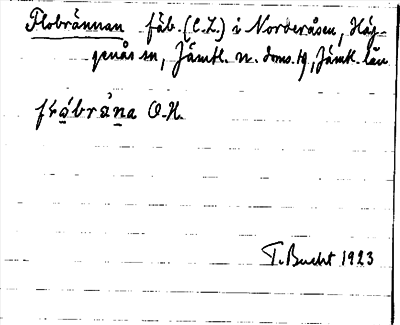 Flobrännan fäb. (C.L.) i Norderåsen, Häg-
genås sn, Jämtl. n. doms. tg, Jämtl. län
O.H.
T. Bucht 1923